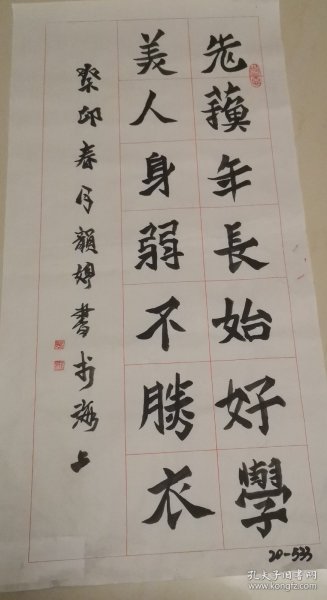 先年長始好學
美人身弱不勝衣
癸卯春月書於海上
20-533
孔夫子旧书网